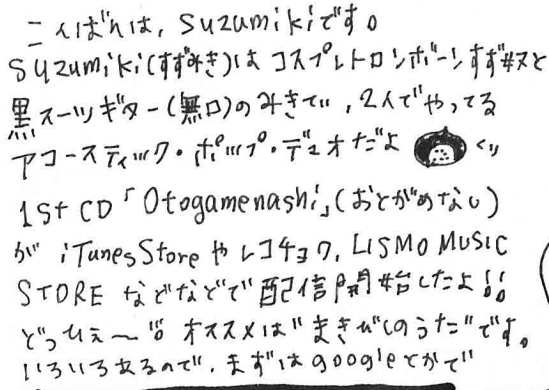 こんばんは, suzumikiです。
suzumiki(すずみき)は コスプレトロンボーンすず#ヌと
黒スーツギター(無口)のみきてぃ, 2人でやってる
アコースティック・ポップ・デュオだよ くり
1st CD「Otogamenashi」(おとがめなし)
が iTunes Store や レコチョク, LISMO MUSIC
STORE などなどで 配信開始したよ!!
どっひぇ〜!! オススメは"まきびしのうた"です。
いろいろあるので、まずはgoogleとかで